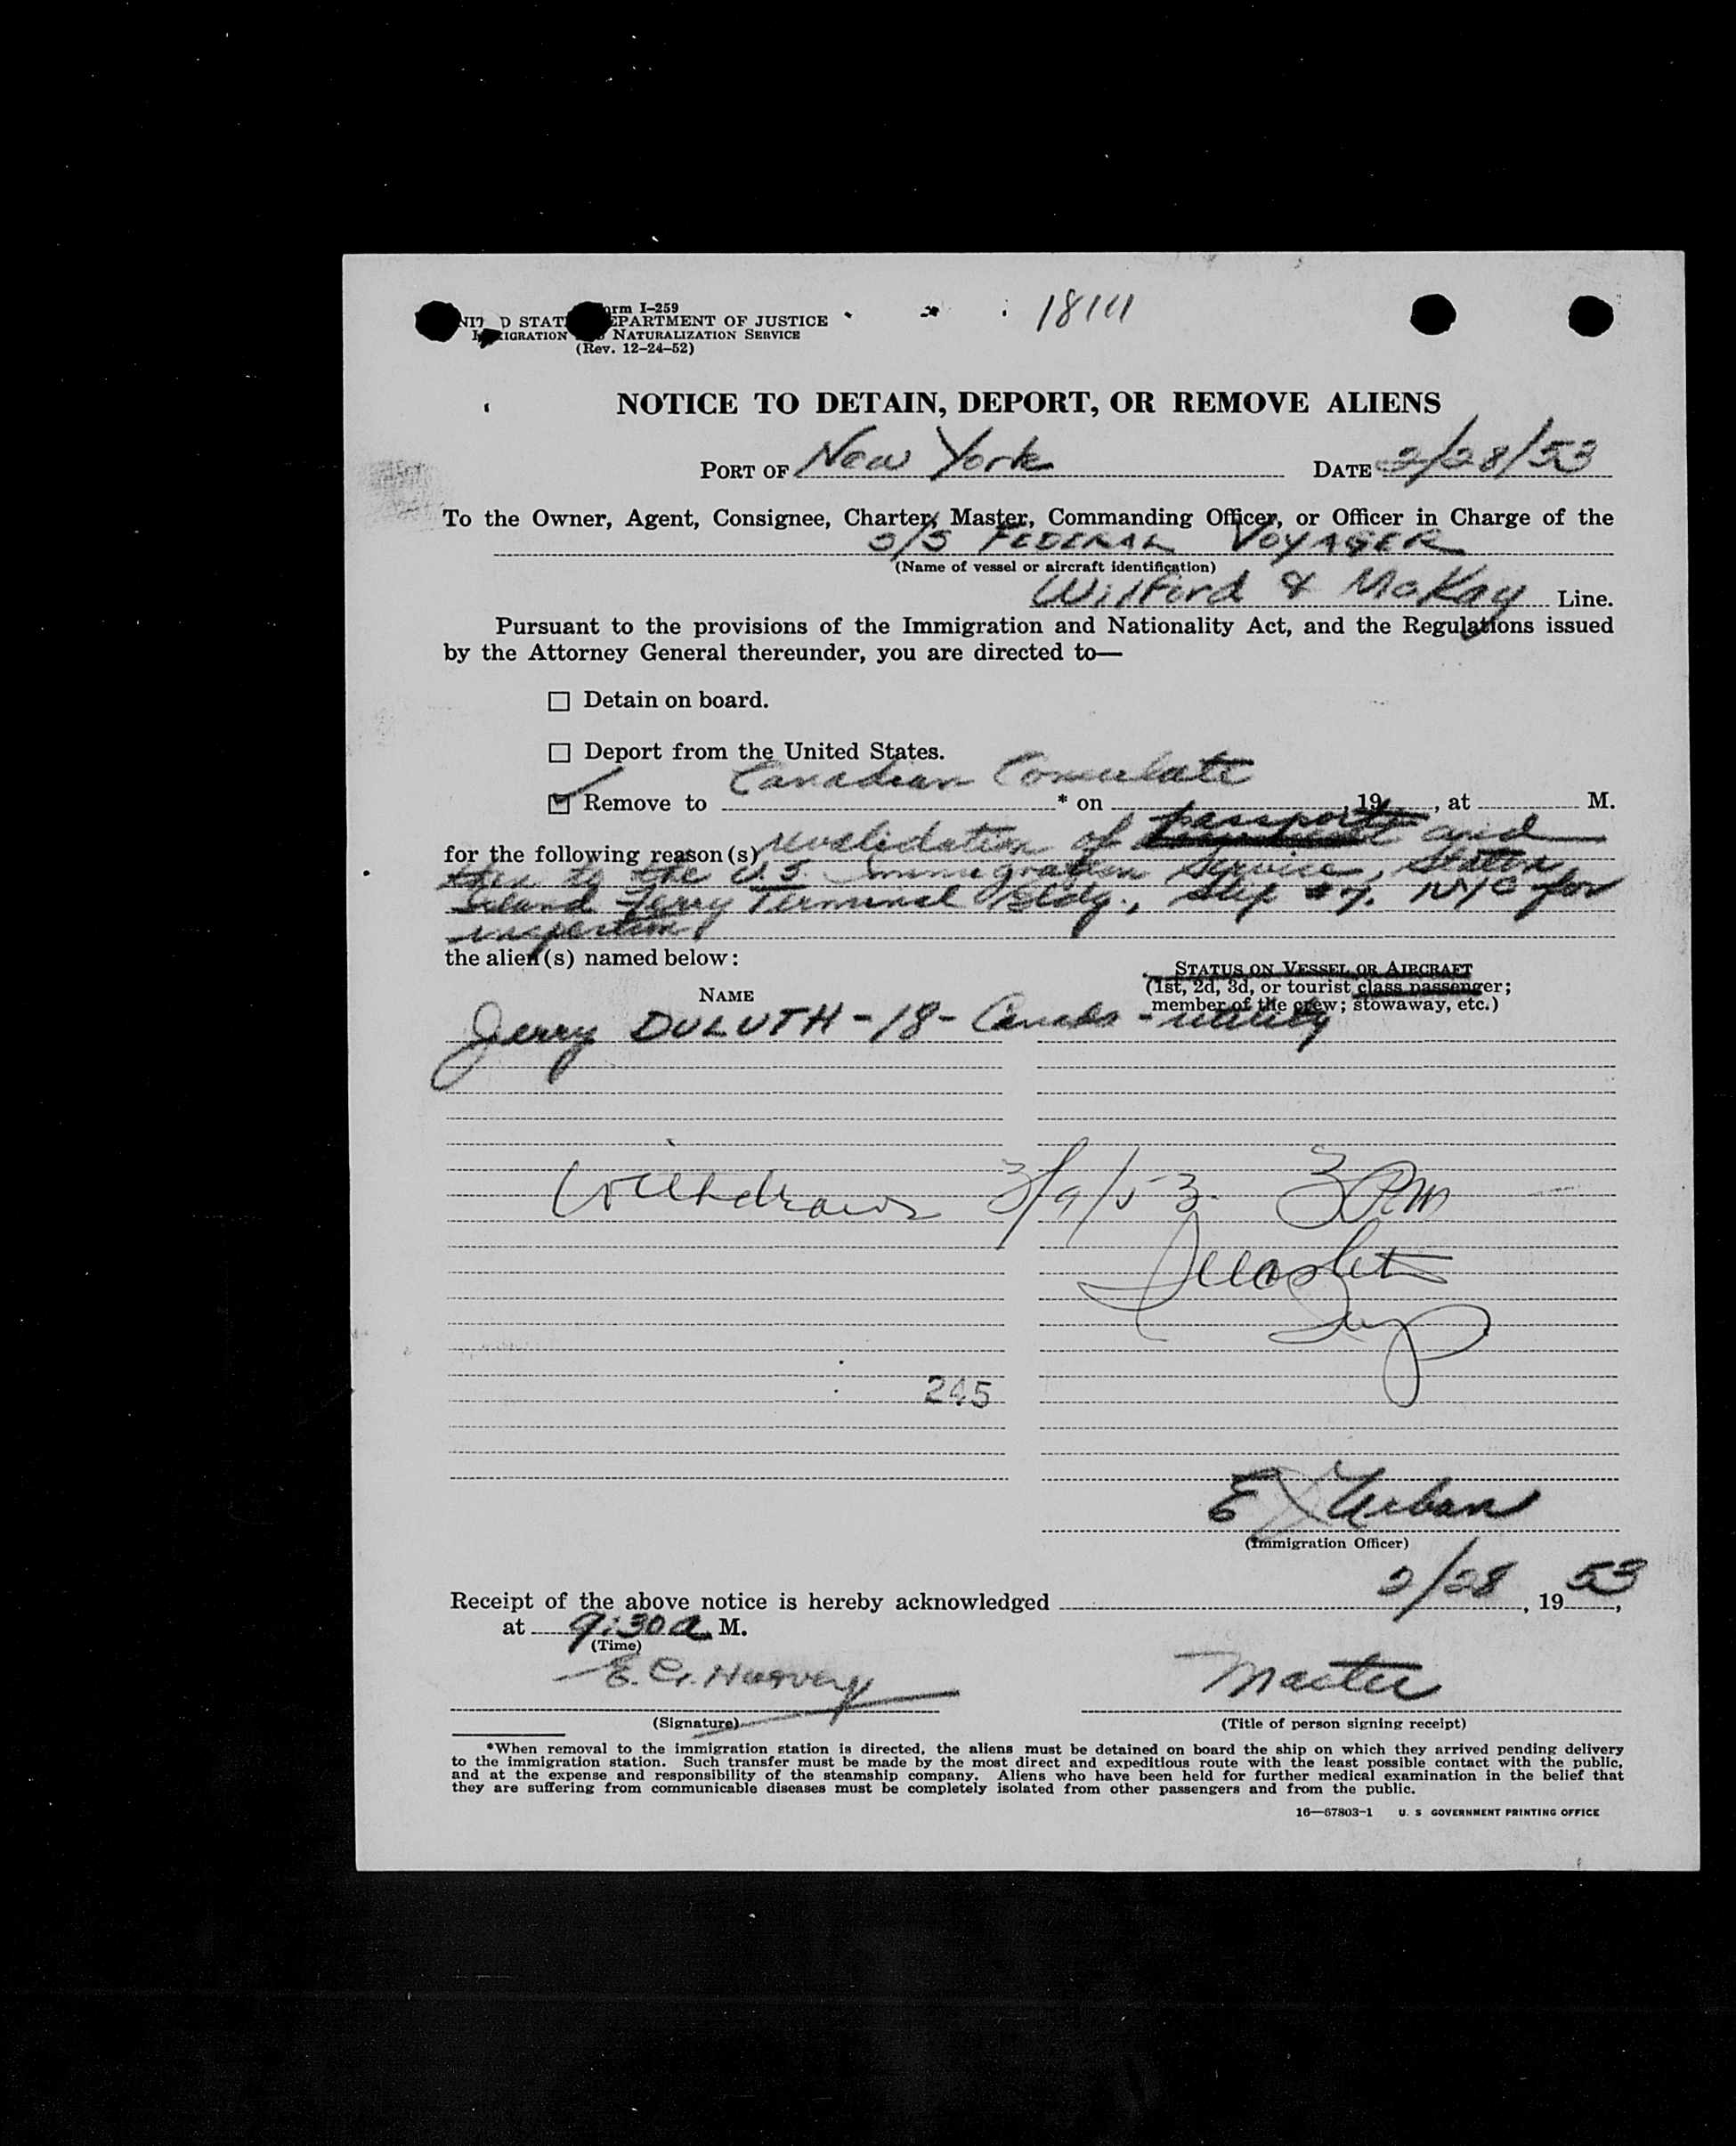 Form I-259
UNITED STATES DEPARTMENT OF JUSTICE
IMMIGRATION AND NATURALIZATION SERVICE
(Rev. 12-24-52)
NOTICE TO DETAIN, DEPORT, OR REMOVE ALIENS
PORT OF New York DATE 2/28/53
To the Owner, Agent, Consignee, Charter, Master, Commanding Officer, or Officer in Charge of the
S/S FEDERAL VOYAGER
(Name of vessel or aircraft identification)
Wilford & McKay Line.
Pursuant to the provisions of the Immigration and Nationality Act, and the Regulations issued
by the Attorney General thereunder, you are directed to—
☐ Detain on board.
☐ Deport from the United States.
☑ Remove to Canadian Consulate * on , 19 , at M.
for the following reason(s) revalidation of passport and
then to the U.S. Immigration Service, Staten
Island Ferry Terminal Bldg., Slip #7. NYC for
inspection.
the alien(s) named below:
STATUS ON VESSEL OR AIRCRAFT
NAME (1st, 2d, 3d, or tourist class passenger;
member of the crew; stowaway, etc.)
Jerry DULUTH - 18 - Canada - utility
Withdrawn 3/9/53. 3 PM
245
E Urban
(Immigration Officer)
Receipt of the above notice is hereby acknowledged 2/28, 1953,
at 9:30 a M.
(Time)
E. G. Harvey Master
(Signature) (Title of person signing receipt)
*When removal to the immigration station is directed, the aliens must be detained on board the ship on which they arrived pending delivery
to the immigration station. Such transfer must be made by the most direct and expeditious route with the least possible contact with the public,
and at the expense and responsibility of the steamship company. Aliens who have been held for further medical examination in the belief that
they are suffering from communicable diseases must be completely isolated from other passengers and from the public.
16—67803-1 U. S GOVERNMENT PRINTING OFFICE